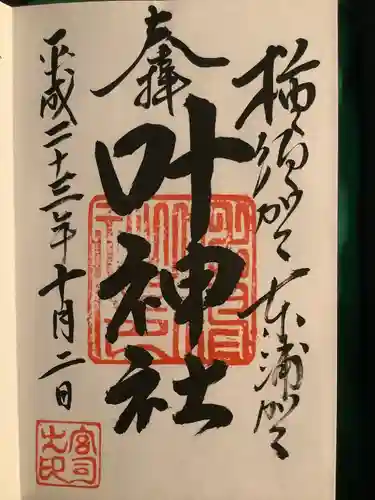 横須賀 東浦賀
奉拝
叶神社
平成二十三年十月二日
宮司之印